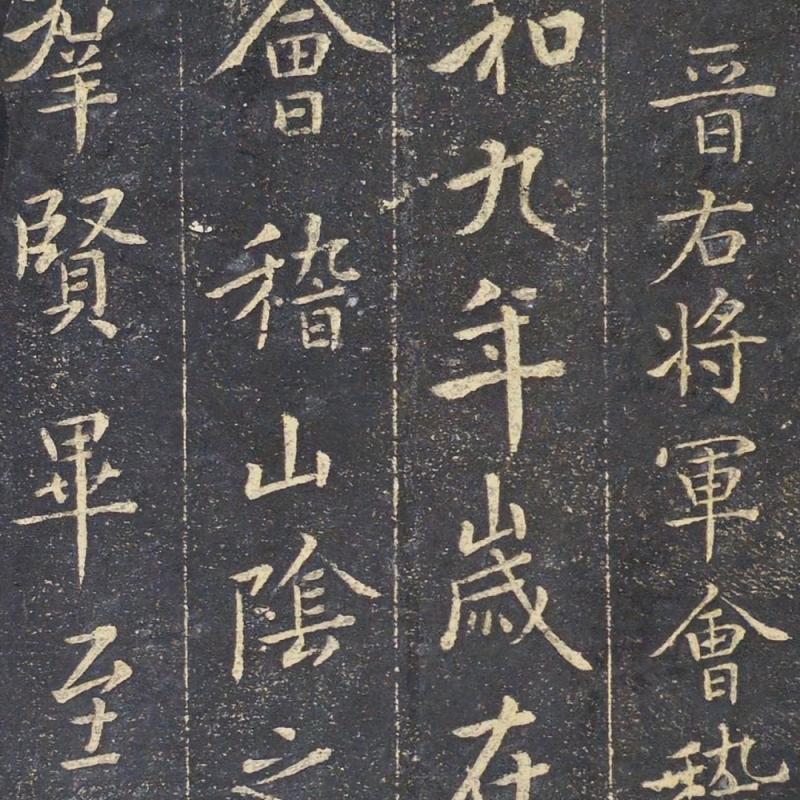 晉右將軍會稽
和九年歲在
會稽山陰之
羣賢畢至